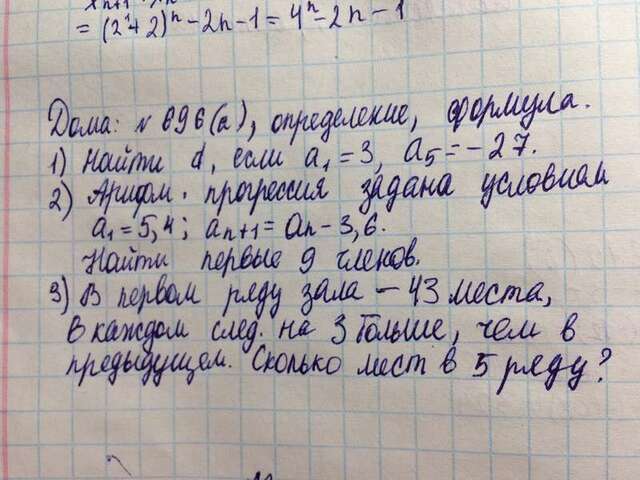 = (2+2)ⁿ - 2n - 1 = 4ⁿ - 2n - 1
Дома: № 696(а), определение, формула.
1) Найти d, если a₁ = 3, a₅ = - 27.
2) Арифм. прогрессия задана условиам
a₁ = 5,4; aₙ₊₁ = aₙ - 3,6.
Найти первые 9 членов.
3) В первом ряду зала - 43 места,
в каждом след. на 3 больше, чем в
предыдущем. Сколько мест в 5 ряду?